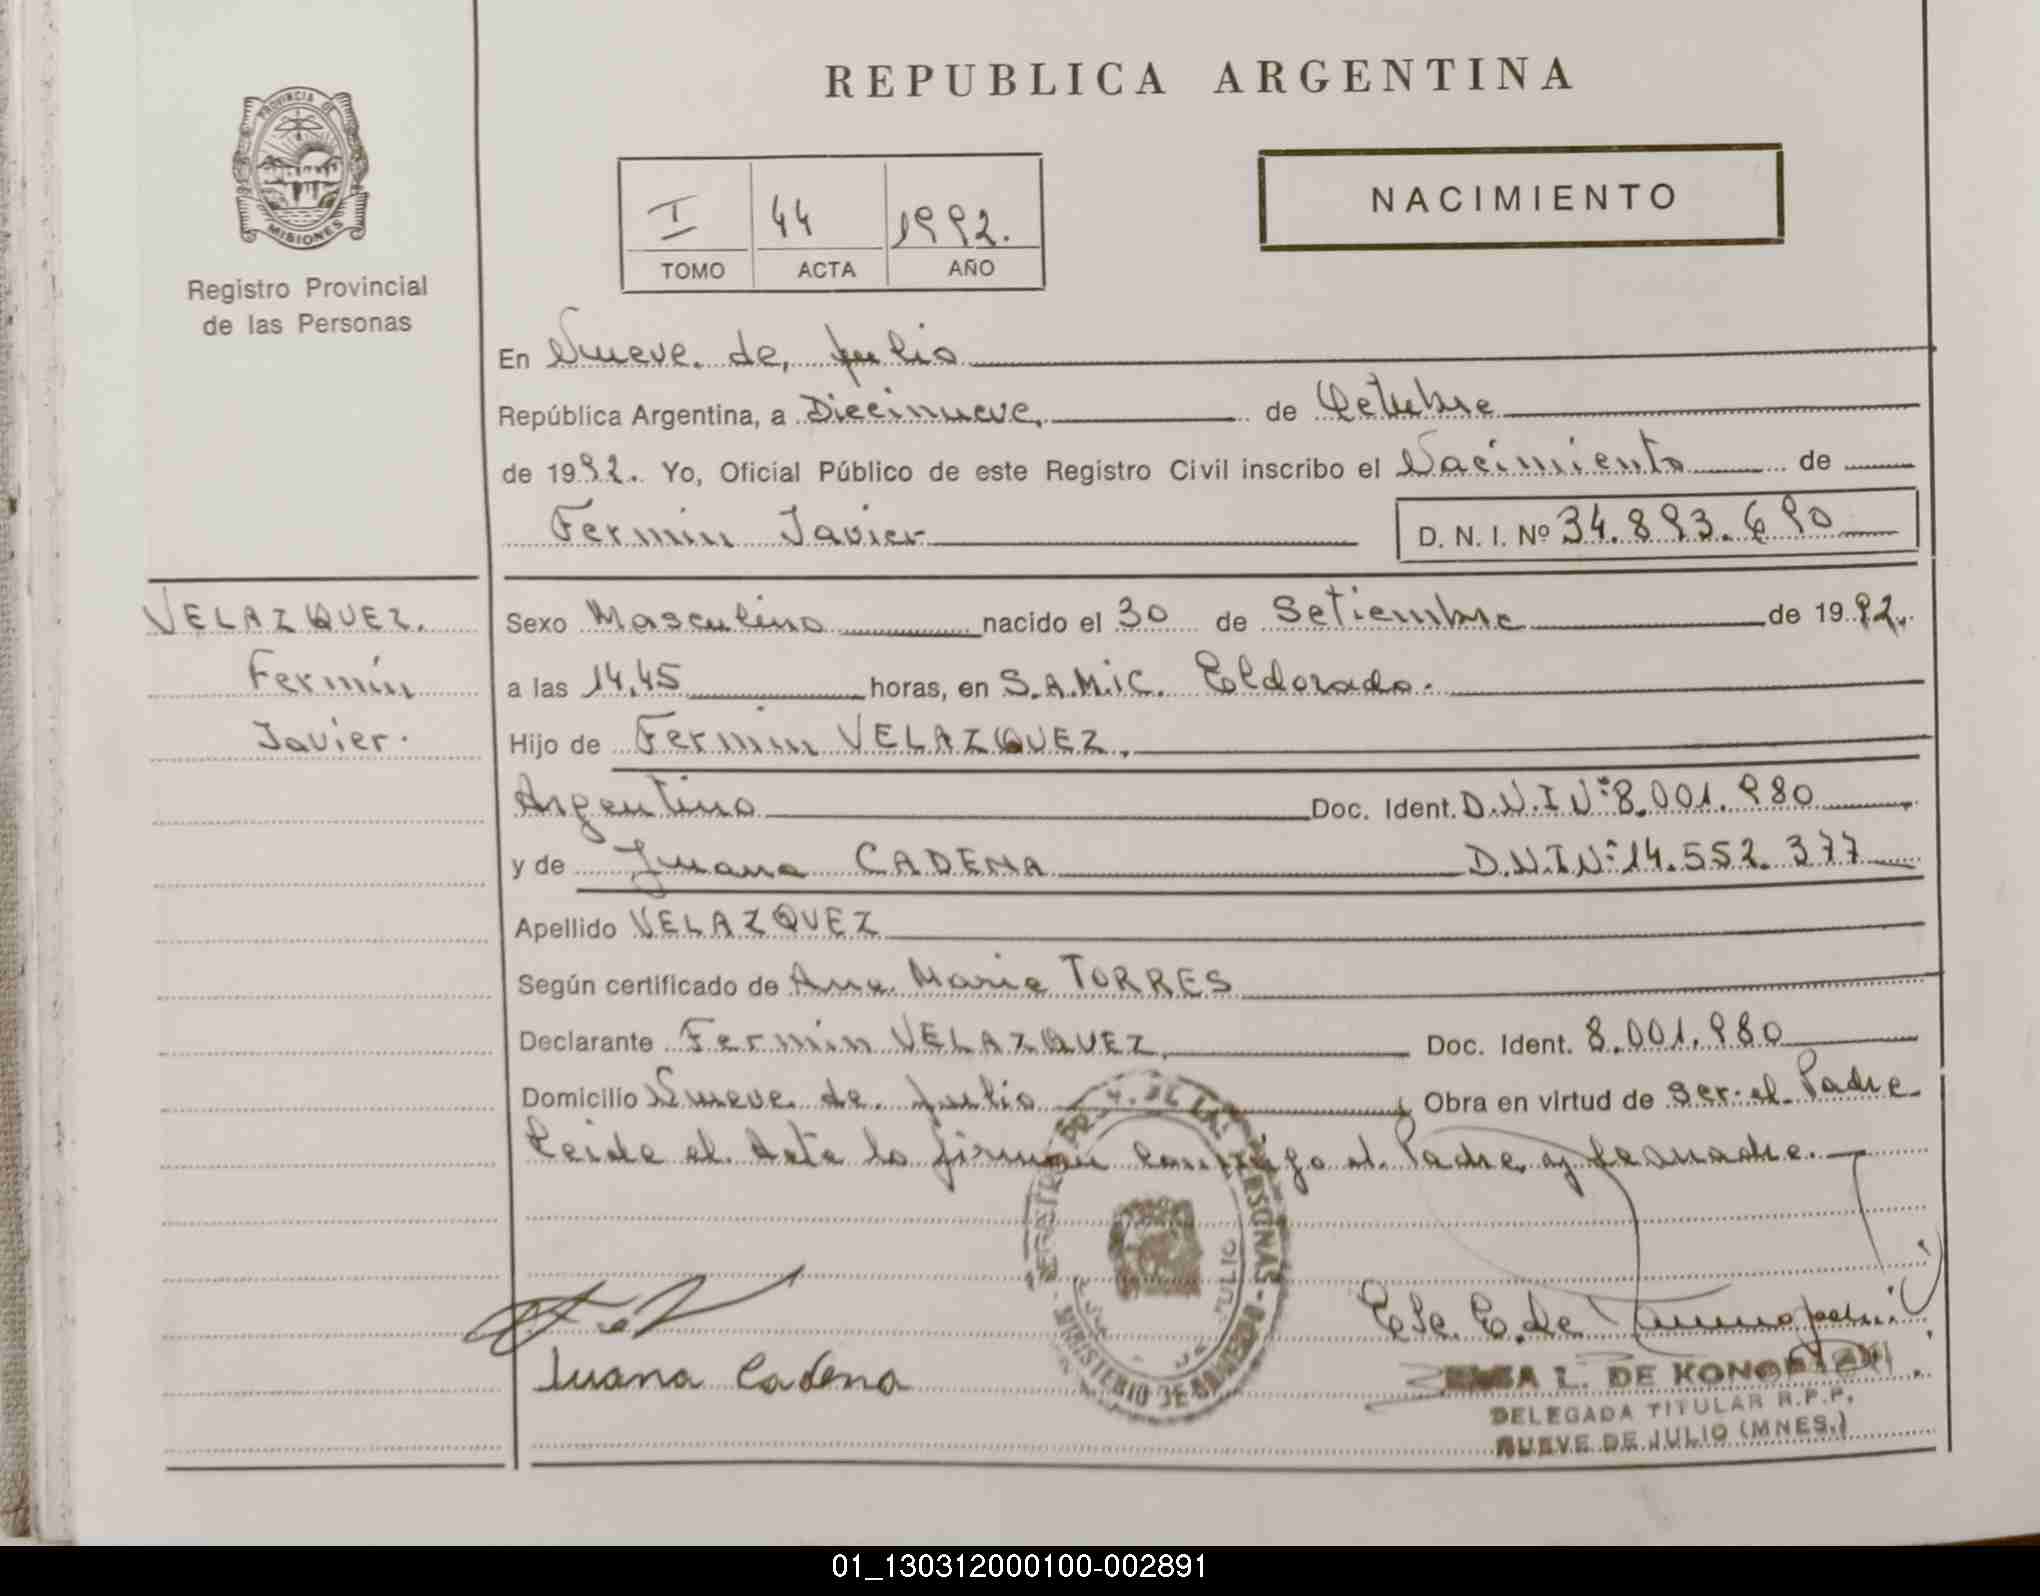 REPUBLICA ARGENTINA
PROVINCIA DE
MISIONES
Registro Provincial
de las Personas
I 44 1992.
TOMO ACTA AÑO
NACIMIENTO
En Nueve de Julio
República Argentina, a Diecinueve de Octubre
de 1992. Yo, Oficial Público de este Registro Civil inscribo el Nacimiento de
Fermin Javier D. N. I. Nº 34.893.690
VELAZQUEZ.
Fermín
Javier.
Sexo Masculino nacido el 30 de Setiembre de 1992.
a las 14,45 horas, en S.A.M.I.C. Eldorado.
Hijo de Fermin VELAZQUEZ.
Argentino Doc. Ident. D.N.I Nº 8.001.980
y de Juana CADENA D.N.I Nº 14.552.377
Apellido VELAZQUEZ
Según certificado de Ana Maria TORRES
Declarante Fermin VELAZQUEZ Doc. Ident. 8.001.980
Domicilio Nueve de Julio Obra en virtud de ser el Padre
Leida el Acta la firman conmigo el Padre y la madre.
DE LAS PERSONAS
MINISTERIO DE GOBIERNO
JULIO
Juana Cadena
L. DE
DELEGADA TITULAR R.P.P.
NUEVE DE JULIO (MNES.)
01_130312000100-002891